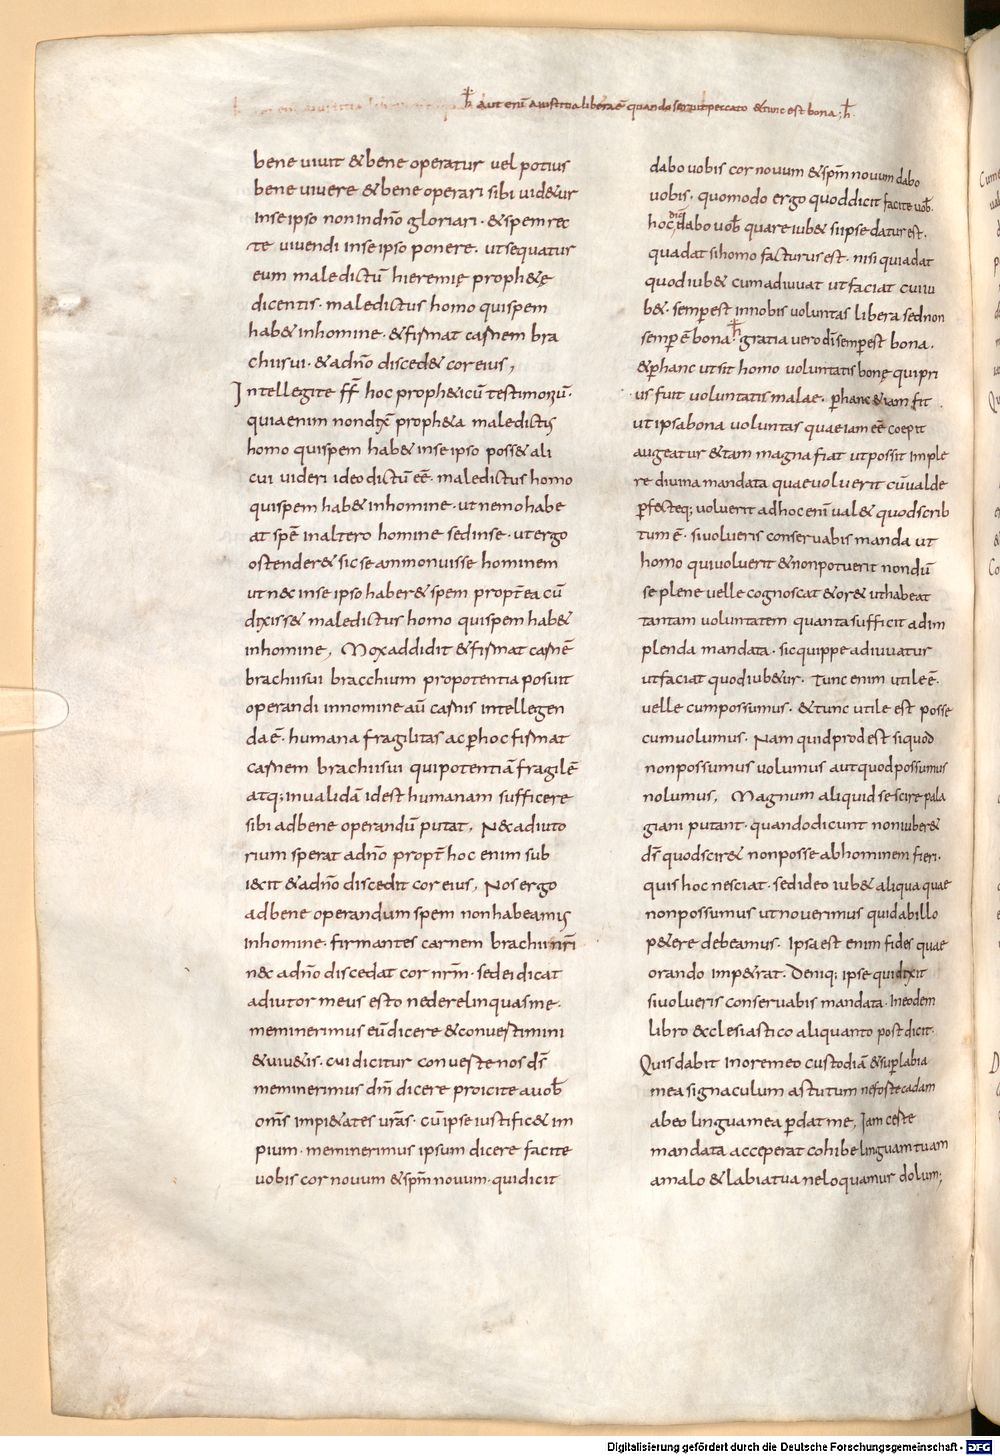 h aut enī a iustitia libera ē quando seruit peccato & tunc est bona; h
bene uiuit & bene operatur uel potius
bene uiuere & bene operari sibi uid&ur
inse ipso non in dño gloriari · & spem rec
te uiuendi inse ipso ponere · ut sequatur
eum maledictū hieremię proph&ę
dicentis · maledictus homo qui spem
hab& in homine · & firmat carnem bra
chii sui · & a dño disced& cor eius,
Intellegite ff̄ hoc proph&icū testimoniū ·
quia enim non dix̄ proph&a maledictus
homo qui spem hab& inse ipso poss& ali
cui uideri ideo dictū eē · maledictus homo
qui spem hab& in homine · ut nemo habe
at spē in altero homine sed in se · ut ergo
ostender& sic se ammonuisse hominem
ut nec inse ipso haber& spem propt̄ea cū
dixiss& maledictus homo qui spem hab&
in homine, Mox addidit & firmat carnē
brachii sui bracchium pro potentia posuit
operandi in nomine aū carnis intellegen
da ē · humana fragilitas ac phoc firmat
carnem brachii sui qui potentiā fragilē
atq; inualidā id est humanam sufficere
sibi ad bene operandū putat, Nec adiuto
rium sperat a dño propt̄ hoc enim sub
iecit & a dño discedit cor eius, Nos ergo
ad bene operandum spem non habeamus
in homine · firmantes carnem brachii nr̄i
nec a dño discedat cor nr̄m · sed ei dicat
adiutor meus esto ne derelinquas me ·
meminerimus eū dicere & conuertimini
& uiu&is · cui dicitur conuerte nos dš
meminerimus dm̄ dicere proicite a uob̄
om̄s impi&ates ur̄as · cū ipse iustific& im
pium · meminerimus ipsum dicere facite
uobis cor nouum & spm̄ nouum · qui dicit
dabo uobis cor nouum & spm̄ nouum dabo
uobis · quomodo ergo quod dicit facite uob̄ ·
hoc dic̄ dabo uob̄ quare iub& si ipse daturus est ·
qua dat si homo facturus est · nisi quia dat
quod iub& cum adiuuat ut faciat cui iu
b& · semper est in nobis uoluntas libera sed non
semp ē bona · h gratia uero dī semper est bona ·
& phanc ut sit homo uoluntatis bonę qui pri
us fuit uoluntatis malae · phanc &iam fit
ut ipsa bona uoluntas quae iam eē coepit
augeatur & tam magna fiat ut possit imple
re diuina mandata quae uoluerit cū ualde
pfecteq; uoluerit ad hoc enī ual& quod scrib
tum ē · si uolueris conseruabis manda ut
homo qui uoluerit & non potuerit nondū
se plene uelle cognoscat & or& ut habeat
tantam uoluntatem quanta sufficit ad im
plenda mandata · sic quippe adiuuatur
ut faciat quod iub&ur · Tunc enim utile ē ·
uelle cum possumus · & tunc utile est posse
cum uolumus · Nam quid prodest si quod
non possumus uolumus aut quod possumus
nolumus, Magnum aliquid se scire pela
giani putant · quando dicunt non iuber&
dš quod scir& non posse ab homine fieri ·
quis hoc nesciat · sed ideo iub& aliqua quae
non possumus ut nouerimus quid ab illo
p&ere debeamus · Ipsa est enim fides quae
orando imp&rat · Deniq; ipse qui dixit
si uolueris conseruabis mandata · In eodem
libro ecclesiastico aliquanto post dicit ·
Quis dabit in ore meo custodiā & sup labia
mea signaculum astutum ne forte cadam
ab eo lingua mea pdat me, Iam certe
mandata acceperat cohibe linguam tuam
a malo & labia tua ne loquamur dolum;
Digitalisierung gefördert durch die Deutsche Forschungsgemeinschaft - DFG